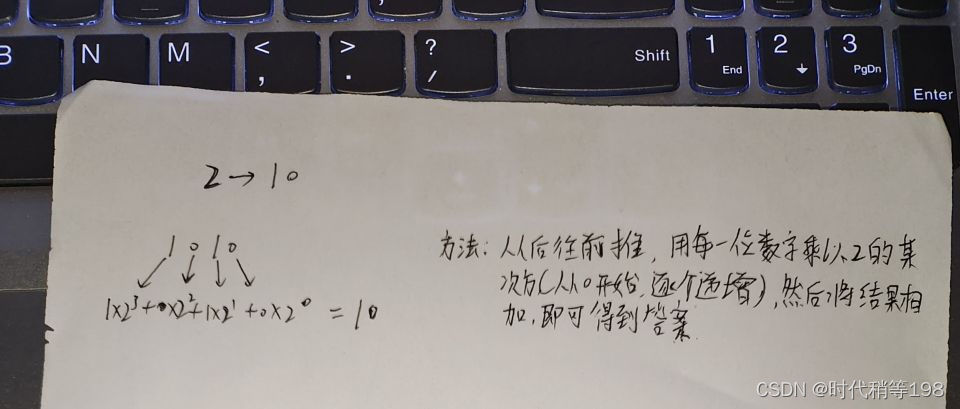 B N M < , > . ? / Shift 1 End 2 3 PgDn Enter
2→10
1010
1×2³+0×2²+1×2¹+0×2⁰ =10
方法: 从后往前推, 用每一位数字乘以2的某
次方(从0开始,逐个递增),然后将结果相
加,即可得到答案.
CSDN @时代稍等198